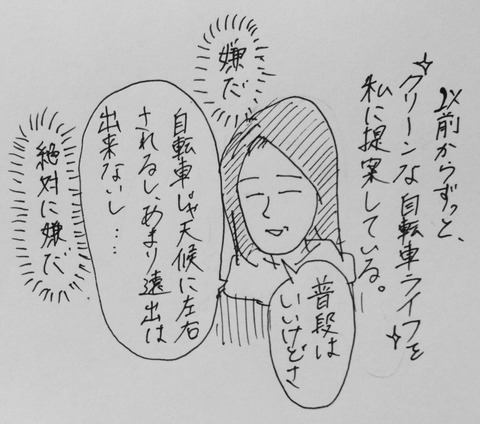 以前からずっと、
クリーンな自転車ライフを
私に提案している。
普段は
いいけどさ
嫌だ
自転車じゃ天候に左右
されるし、あまり遠出は
出来ないし…
絶対に嫌だ